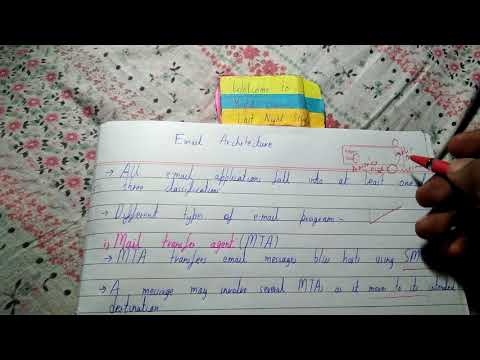 Welcome to
Last Night
Email Architecture
→ All email application fall into at least one of
three classification.
→ Different types of email program:-
i) Mail transfer agent (MTA)
→ MTA transfers email messages b/w hosts using SM
→ A message may involve several MTAs as it moves to its intended
destination